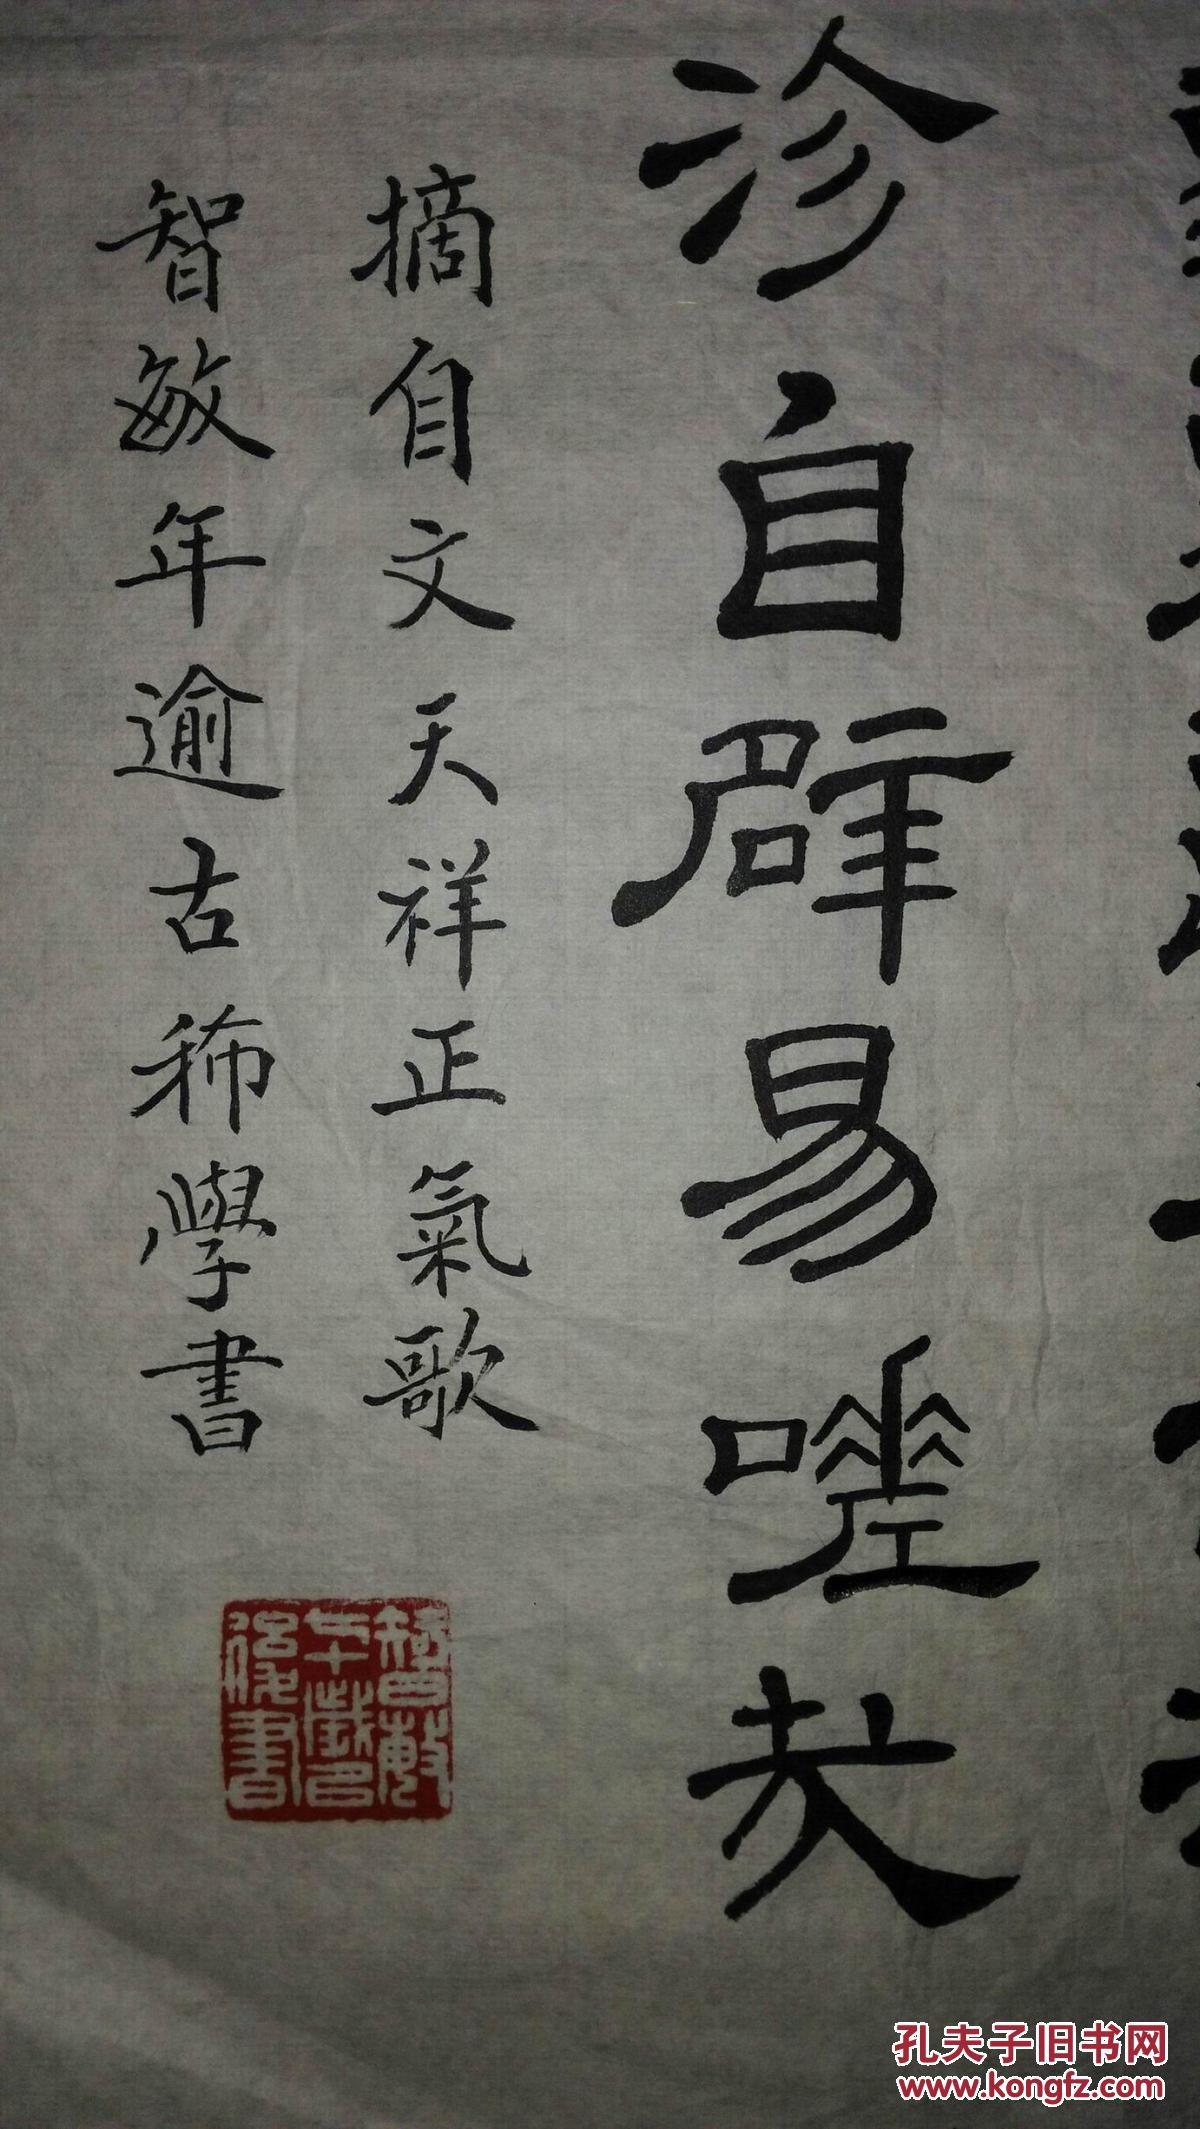 沴自辟易嗟哉
摘自文天祥正氣歌
智敏年逾古稀學書
智敏
七十歲以
後書
孔夫子旧书网
www.kongfz.com